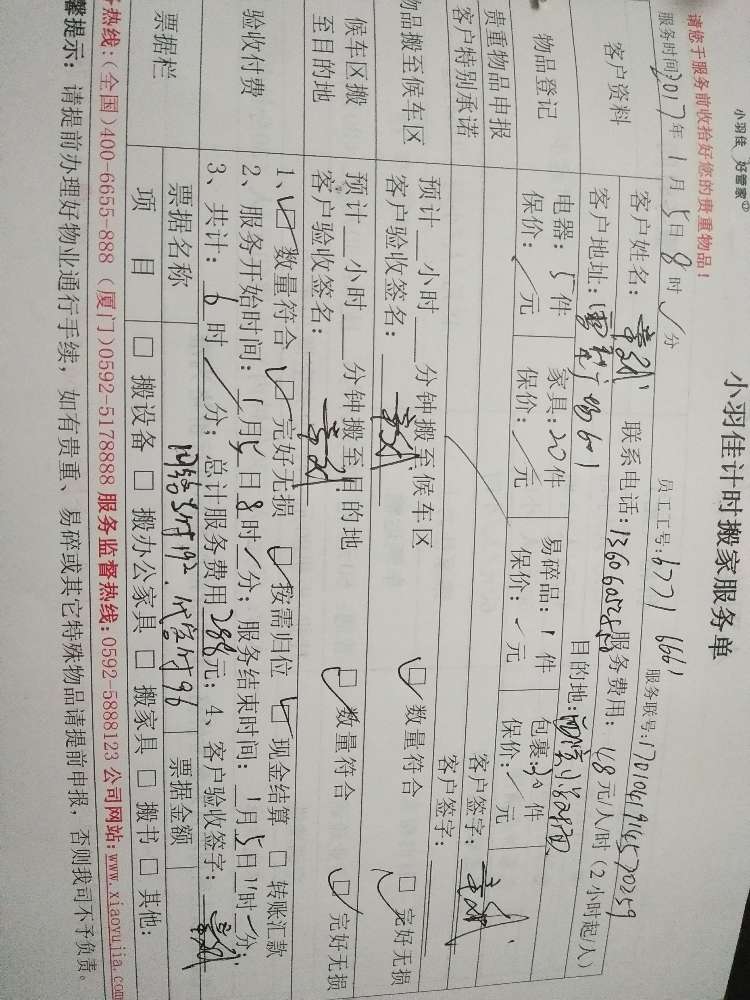 小羽佳 好管家
小羽佳计时搬家服务单
请您于服务前收拾好您的贵重物品！
员工工号：6771 6661
服务联号：1701041914570259
服务时间：2017年1月5日8时/分
客户资料
客户姓名：
联系电话：
服务费用：48元/人/时（2小时起/人）
客户地址：
目的地：
物品登记
电器：5件
家具：20件
易碎品：1件
包裹：30件
保价：/元
保价：/元
保价：/元
保价：/元
贵重物品申报
客户签字：
客户特别承诺
客户签字：
物品搬至候车区
预计__小时__分钟搬至候车区
☑数量符合 ☑完好无损
客户验收签名：
候车区搬至目的地
预计__小时__分钟搬至目的地
☑数量符合 ☑完好无损
客户验收签名：
验收付费
1、☑数量符合 ☑完好无损 ☑按需归位 ☑现金结算 □转账汇款
2、服务开始时间：1月5日8时/分；服务结束时间：1月5日11时/分；
3、共计：6时/分；总计服务费用288元；4、客户验收签字：
票据栏
票据名称
票据金额
项目
□搬设备 □搬办公家具 □搬家具 □搬书 □其他：
热线：（全国）400-6655-888（厦门）0592-5178888 服务监督热线：0592-5888123 公司网站：www.xiaoyujia.com
馨提示：请提前办理好物业通行手续，如有贵重、易碎或其它特殊物品请提前申报，否则我司不予负责。